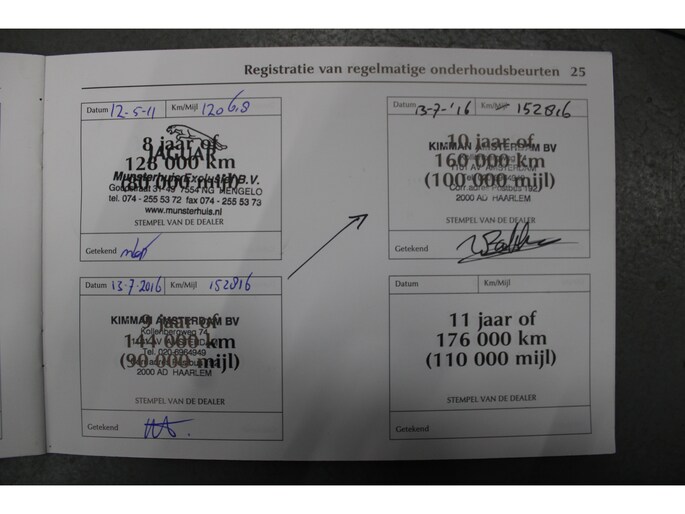 Registratie van regelmatige onderhoudsbeurten 25
Datum 12-5-11 Km/Mijl 120618
8 jaar of
JAGUAR
128 000 km
(80 000 mijl)
Munsterhuis Exclusief B.V.
31-49 7554 NG HENGELO
tel. 074 - 255 53 72 fax 074 - 255 53 73
www.munsterhuis.nl
STEMPEL VAN DE DEALER
Getekend
Datum 13-7-2016 Km/Mijl 152816
KIMMAN AMSTERDAM BV
9 jaar of
Kollenbergweg 74
144 000 km
Tel. 020-6964949
(90 000 mijl)
2000 AD HAARLEM
STEMPEL VAN DE DEALER
Getekend
Datum 13-7-'16 Km/Mijl 152816
10 jaar of
KIMMAN AMSTERDAM BV
160 000 km
1101 AV AMSTERDAM
(100 000 mijl)
Corr.adres: Postbus 192
2000 AD HAARLEM
STEMPEL VAN DE DEALER
Getekend
Datum Km/Mijl
11 jaar of
176 000 km
(110 000 mijl)
STEMPEL VAN DE DEALER
Getekend